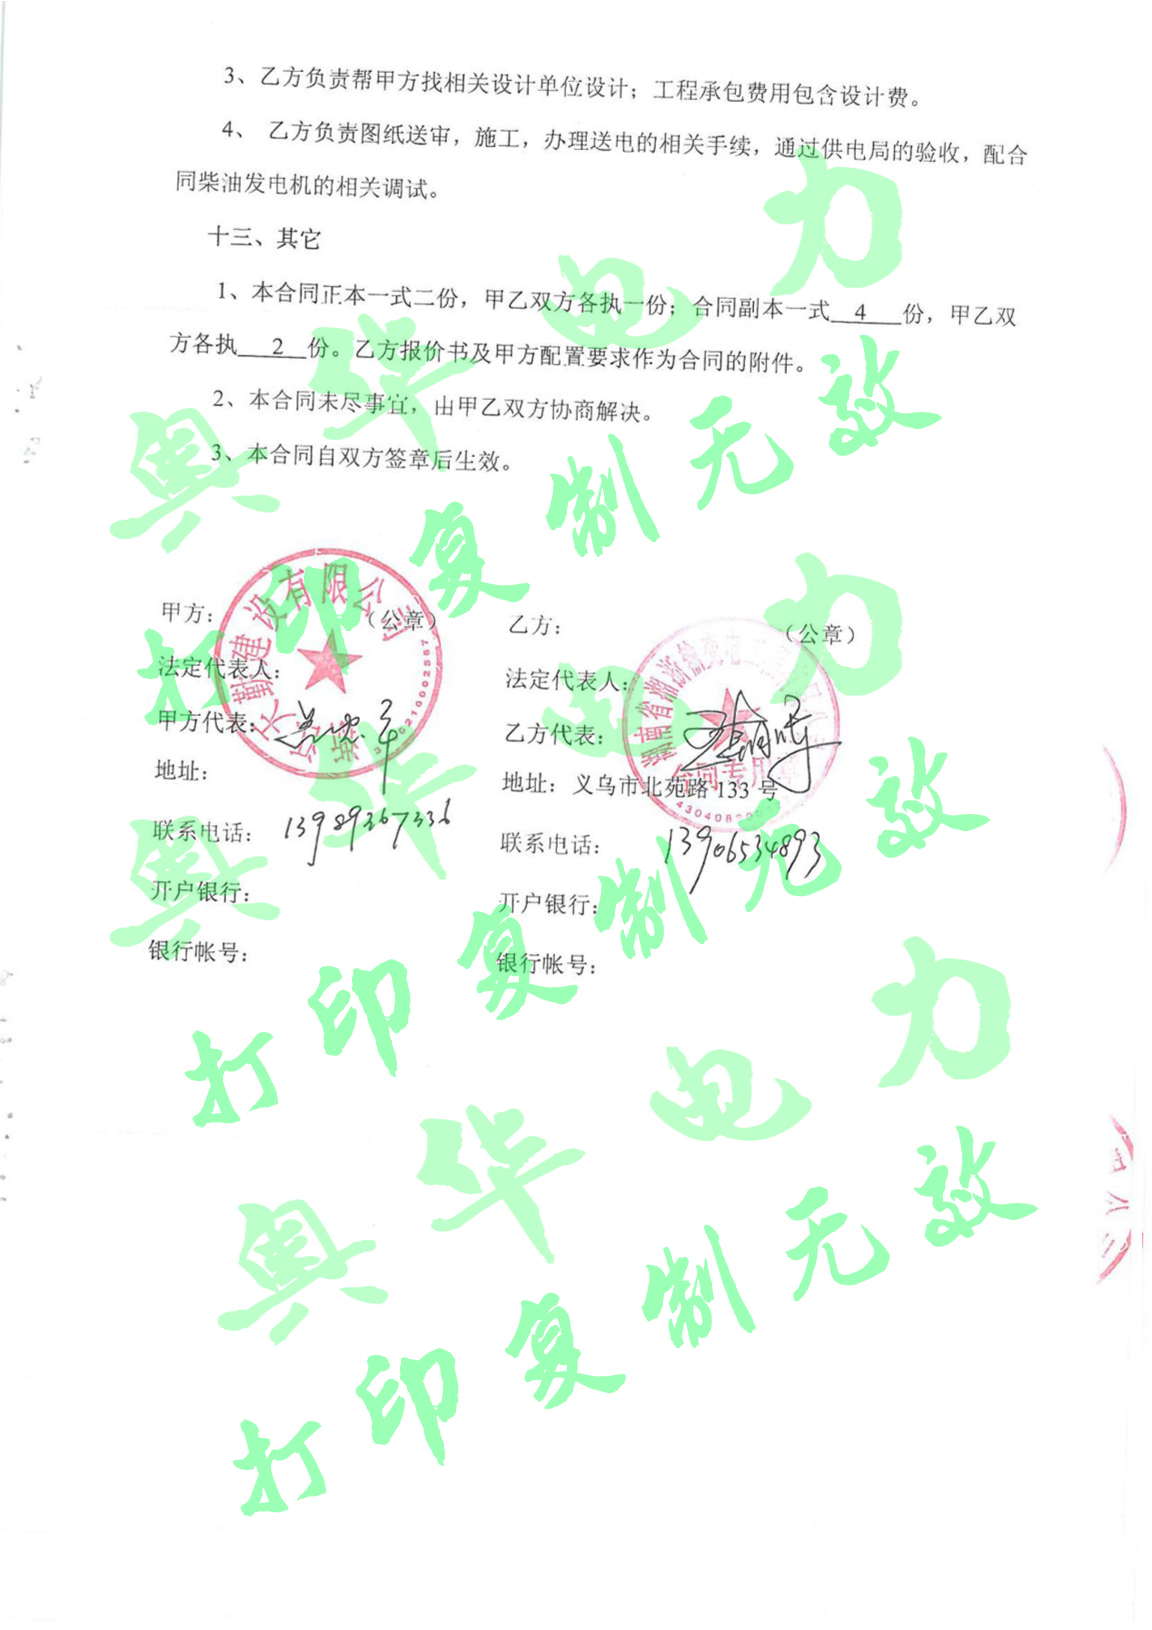 3、乙方负责帮甲方找相关设计单位设计；工程承包费用包含设计费。
4、 乙方负责图纸送审，施工，办理送电的相关手续，通过供电局的验收，配合
同柴油发电机的相关调试。
十三、其它
1、本合同正本一式二份，甲乙双方各执一份；合同副本一式 4 份，甲乙双
方各执 2 份。乙方报价书及甲方配置要求作为合同的附件。
2、本合同未尽事宜，由甲乙双方协商解决。
3、本合同自双方签章后生效。
甲方： （公章）
法定代表人：
甲方代表：
地址：
联系电话：13989367336
开户银行：
银行帐号：
建设有限公司
330210002567
乙方： （公章）
法定代表人：
乙方代表：
地址：义乌市北苑路 133 号
联系电话：13906534893
开户银行：
银行帐号：
湖南省湘浙输变电工程有限公司
合同专用章
奥华电力
打印复制无效
奥华电力
打印复制无效
奥华电力
打印复制无效